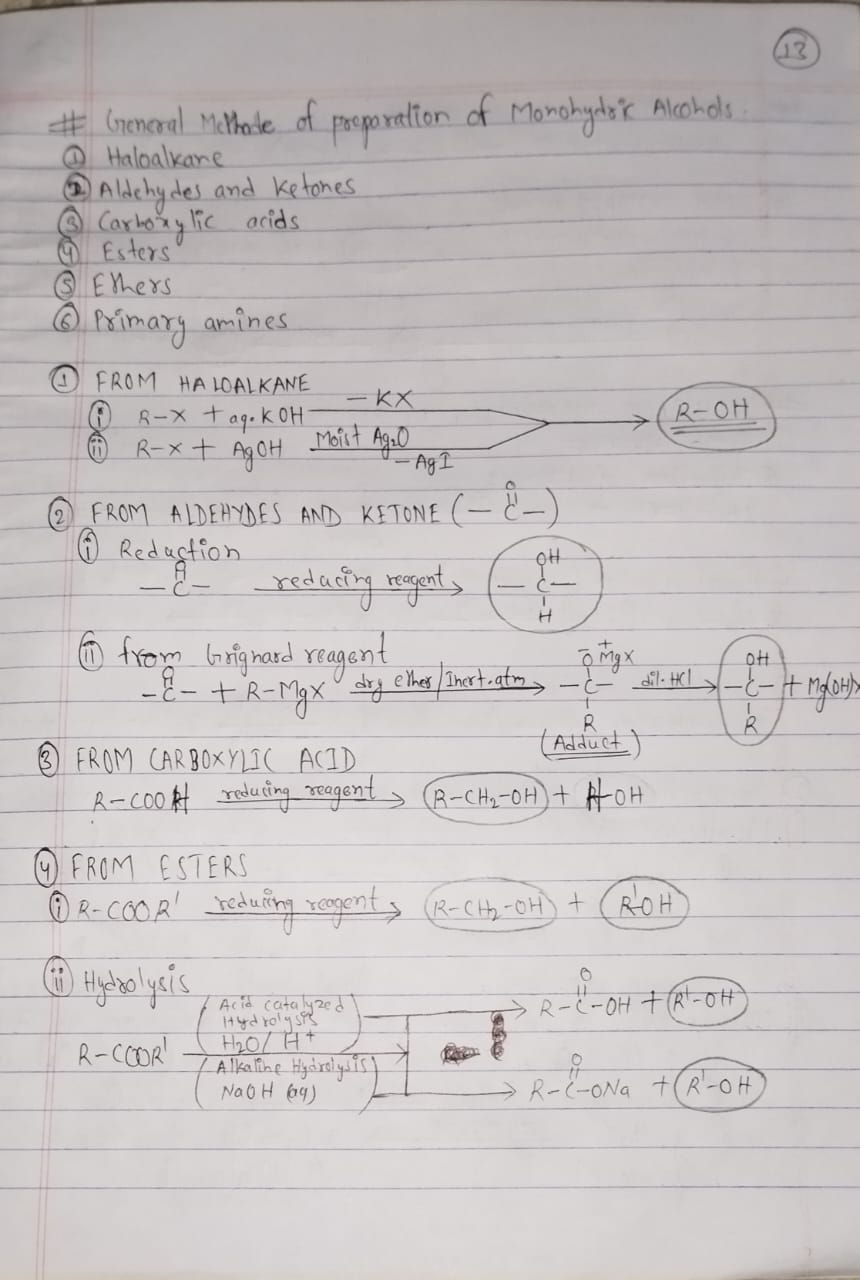 13
# General Methode of preparation of Monohydric Alcohols.
① Haloalkane
② Aldehydes and ketones
③ Carboxylic acids
④ Esters
⑤ Ethers
⑥ Primary amines
① FROM HALOALKANE
ⓘ R-X + aq. KOH -KX
R-OH
ⓘⓘ R-X + AgOH Moist Ag₂O -AgI
② FROM ALDEHYDES AND KETONE (-C-)
O
ⓘ Reduction
O OH
-C- reducing reagent → -C-
H
ⓘⓘ from Grignard reagent
O Ō⁺MgX OH
-C- + R-MgX dry ether/Inert.atm → -C- dil. HCl → -C- + Mg(OH)X
R R
(Adduct)
③ FROM CARBOXYLIC ACID
R-COOH reducing reagent → R-CH₂-OH + H-OH
④ FROM ESTERS
ⓘ R-COOR' reducing reagent → R-CH₂-OH + R'OH
ⓘⓘ Hydrolysis
O
(Acid catalyzed → R-C-OH + R'-OH
Hydrolysis
H₂O/H⁺)
R-COOR' →
(Alkaline Hydrolysis
O
NaOH (aq)) → R-C-ONa + R'-OH